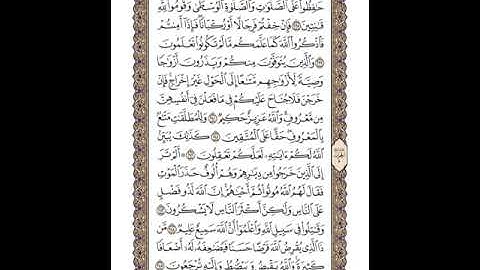 حَٰفِظُوا۟ عَلَى ٱلصَّلَوَٰتِ وَٱلصَّلَوٰةِ ٱلْوُسْطَىٰ وَقُومُوا۟ لِلَّهِ
قَٰنِتِينَ ٢٣٨ فَإِنْ خِفْتُمْ فَرِجَالًا أَوْ رُكْبَانًا فَإِذَآ أَمِنتُمْ
فَٱذْكُرُوا۟ ٱللَّهَ كَمَا عَلَّمَكُم مَّا لَمْ تَكُونُوا۟ تَعْلَمُونَ
٢٣٩ وَٱلَّذِينَ يُتَوَفَّوْنَ مِنكُمْ وَيَذَرُونَ أَزْوَٰجًا
وَصِيَّةً لِّأَزْوَٰجِهِم مَّتَٰعًا إِلَى ٱلْحَوْلِ غَيْرَ إِخْرَاجٍ فَإِنْ
خَرَجْنَ فَلَا جُنَاحَ عَلَيْكُمْ فِى مَا فَعَلْنَ فِىٓ أَنفُسِهِنَّ
مِن مَّعْرُوفٍ وَٱللَّهُ عَزِيزٌ حَكِيمٌ ٢٤٠ وَلِلْمُطَلَّقَٰتِ مَتَٰعٌۢ
بِٱلْمَعْرُوفِ حَقًّا عَلَى ٱلْمُتَّقِينَ ٢٤١ كَذَٰلِكَ يُبَيِّنُ
ٱللَّهُ لَكُمْ ءَايَٰتِهِۦ لَعَلَّكُمْ تَعْقِلُونَ ٢٤٢ ۞ أَلَمْ تَرَ
إِلَى ٱلَّذِينَ خَرَجُوا۟ مِن دِيَٰرِهِمْ وَهُمْ أُلُوفٌ حَذَرَ ٱلْمَوْتِ
فَقَالَ لَهُمُ ٱللَّهُ مُوتُوا۟ ثُمَّ أَحْيَٰهُمْ إِنَّ ٱللَّهَ لَذُو فَضْلٍ
عَلَى ٱلنَّاسِ وَلَٰكِنَّ أَكْثَرَ ٱلنَّاسِ لَا يَشْكُرُونَ ٢٤٣
وَقَٰتِلُوا۟ فِى سَبِيلِ ٱللَّهِ وَٱعْلَمُوٓا۟ أَنَّ ٱللَّهَ سَمِيعٌ عَلِيمٌ ٢٤٤
مَّن ذَا ٱلَّذِى يُقْرِضُ ٱللَّهَ قَرْضًا حَسَنًا فَيُضَٰعِفَهُۥ لَهُۥٓ أَضْعَافًا
كَثِيرَةً وَٱللَّهُ يَقْبِضُ وَيَبْصُۜطُ وَإِلَيْهِ تُرْجَعُونَ ٢٤٥